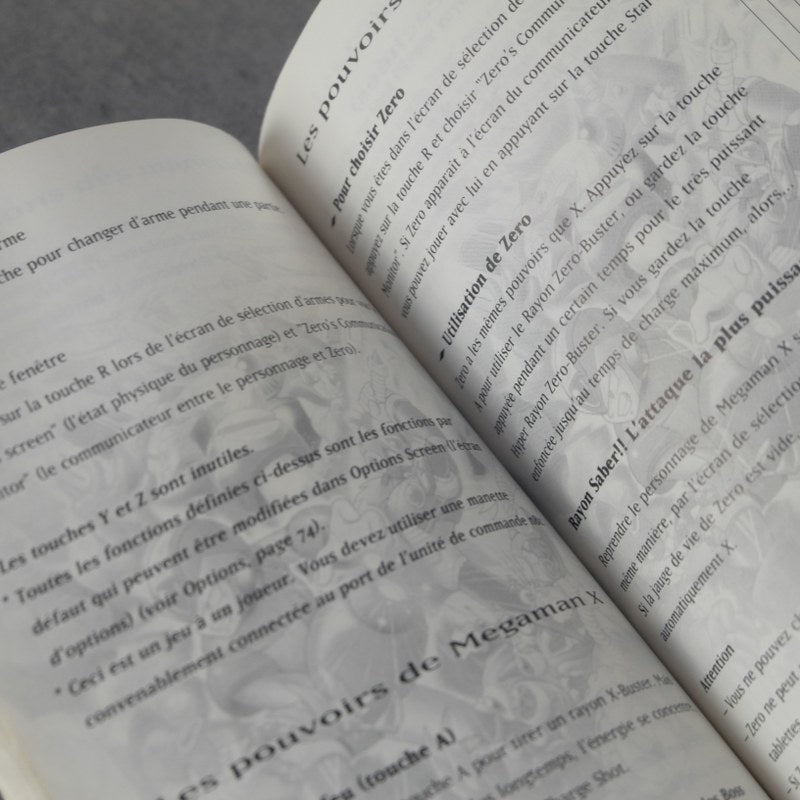 rme
che pour changer d'arme pendant une partie.
e fenêtre
sur la touche R lors de l'écran de sélection d'armes pour
screen" (l'état physique du personnage) et "Zero's Communica
itor" (le communicateur entre le personnage et Zero).
Les touches Y et Z sont inutiles.
* Toutes les fonctions définies ci-dessus sont les fonctions par
défaut qui peuvent être modifiées dans Options Screen (l'écran
d'options) (voir Options, page 74).
* Ceci est un jeu à un joueur. Vous devez utiliser une manette
convenablement connectée au port de l'unité de commande no
Les pouvoirs de Megaman X
feu (touche A)
touche A pour tirer un rayon X-Buster. Mais
longtemps, l'énergie se concentre
Charge Shot.
Boss
Les pouvoirs
• Pour choisir Zero
Lorsque vous êtes dans l'écran de sélection de
appuyez sur la touche R et choisir "Zero's Commun
Monitor". Si Zero apparaît à l'écran du communicateur
vous pouvez jouer avec lui en appuyant sur la touche Star
• Utilisation de Zero
Zero a les mêmes pouvoirs que X. Appuyez sur la touche
A pour utiliser le Rayon Zero-Buster, ou gardez la touche
appuyée pendant un certain temps pour le très puissant
Hyper Rayon Zero-Buster. Si vous gardez la touche
enfoncée jusqu'au temps de charge maximum, alors...
Rayon Saber!! L'attaque la plus puissa
Reprendre le personnage de Megaman X
même manière, par l'écran de sélection
Si la jauge de vie de Zero est vide,
automatiquement X.
Attention
– Vous ne pouvez
– Zero ne peut
tablettes
– Si